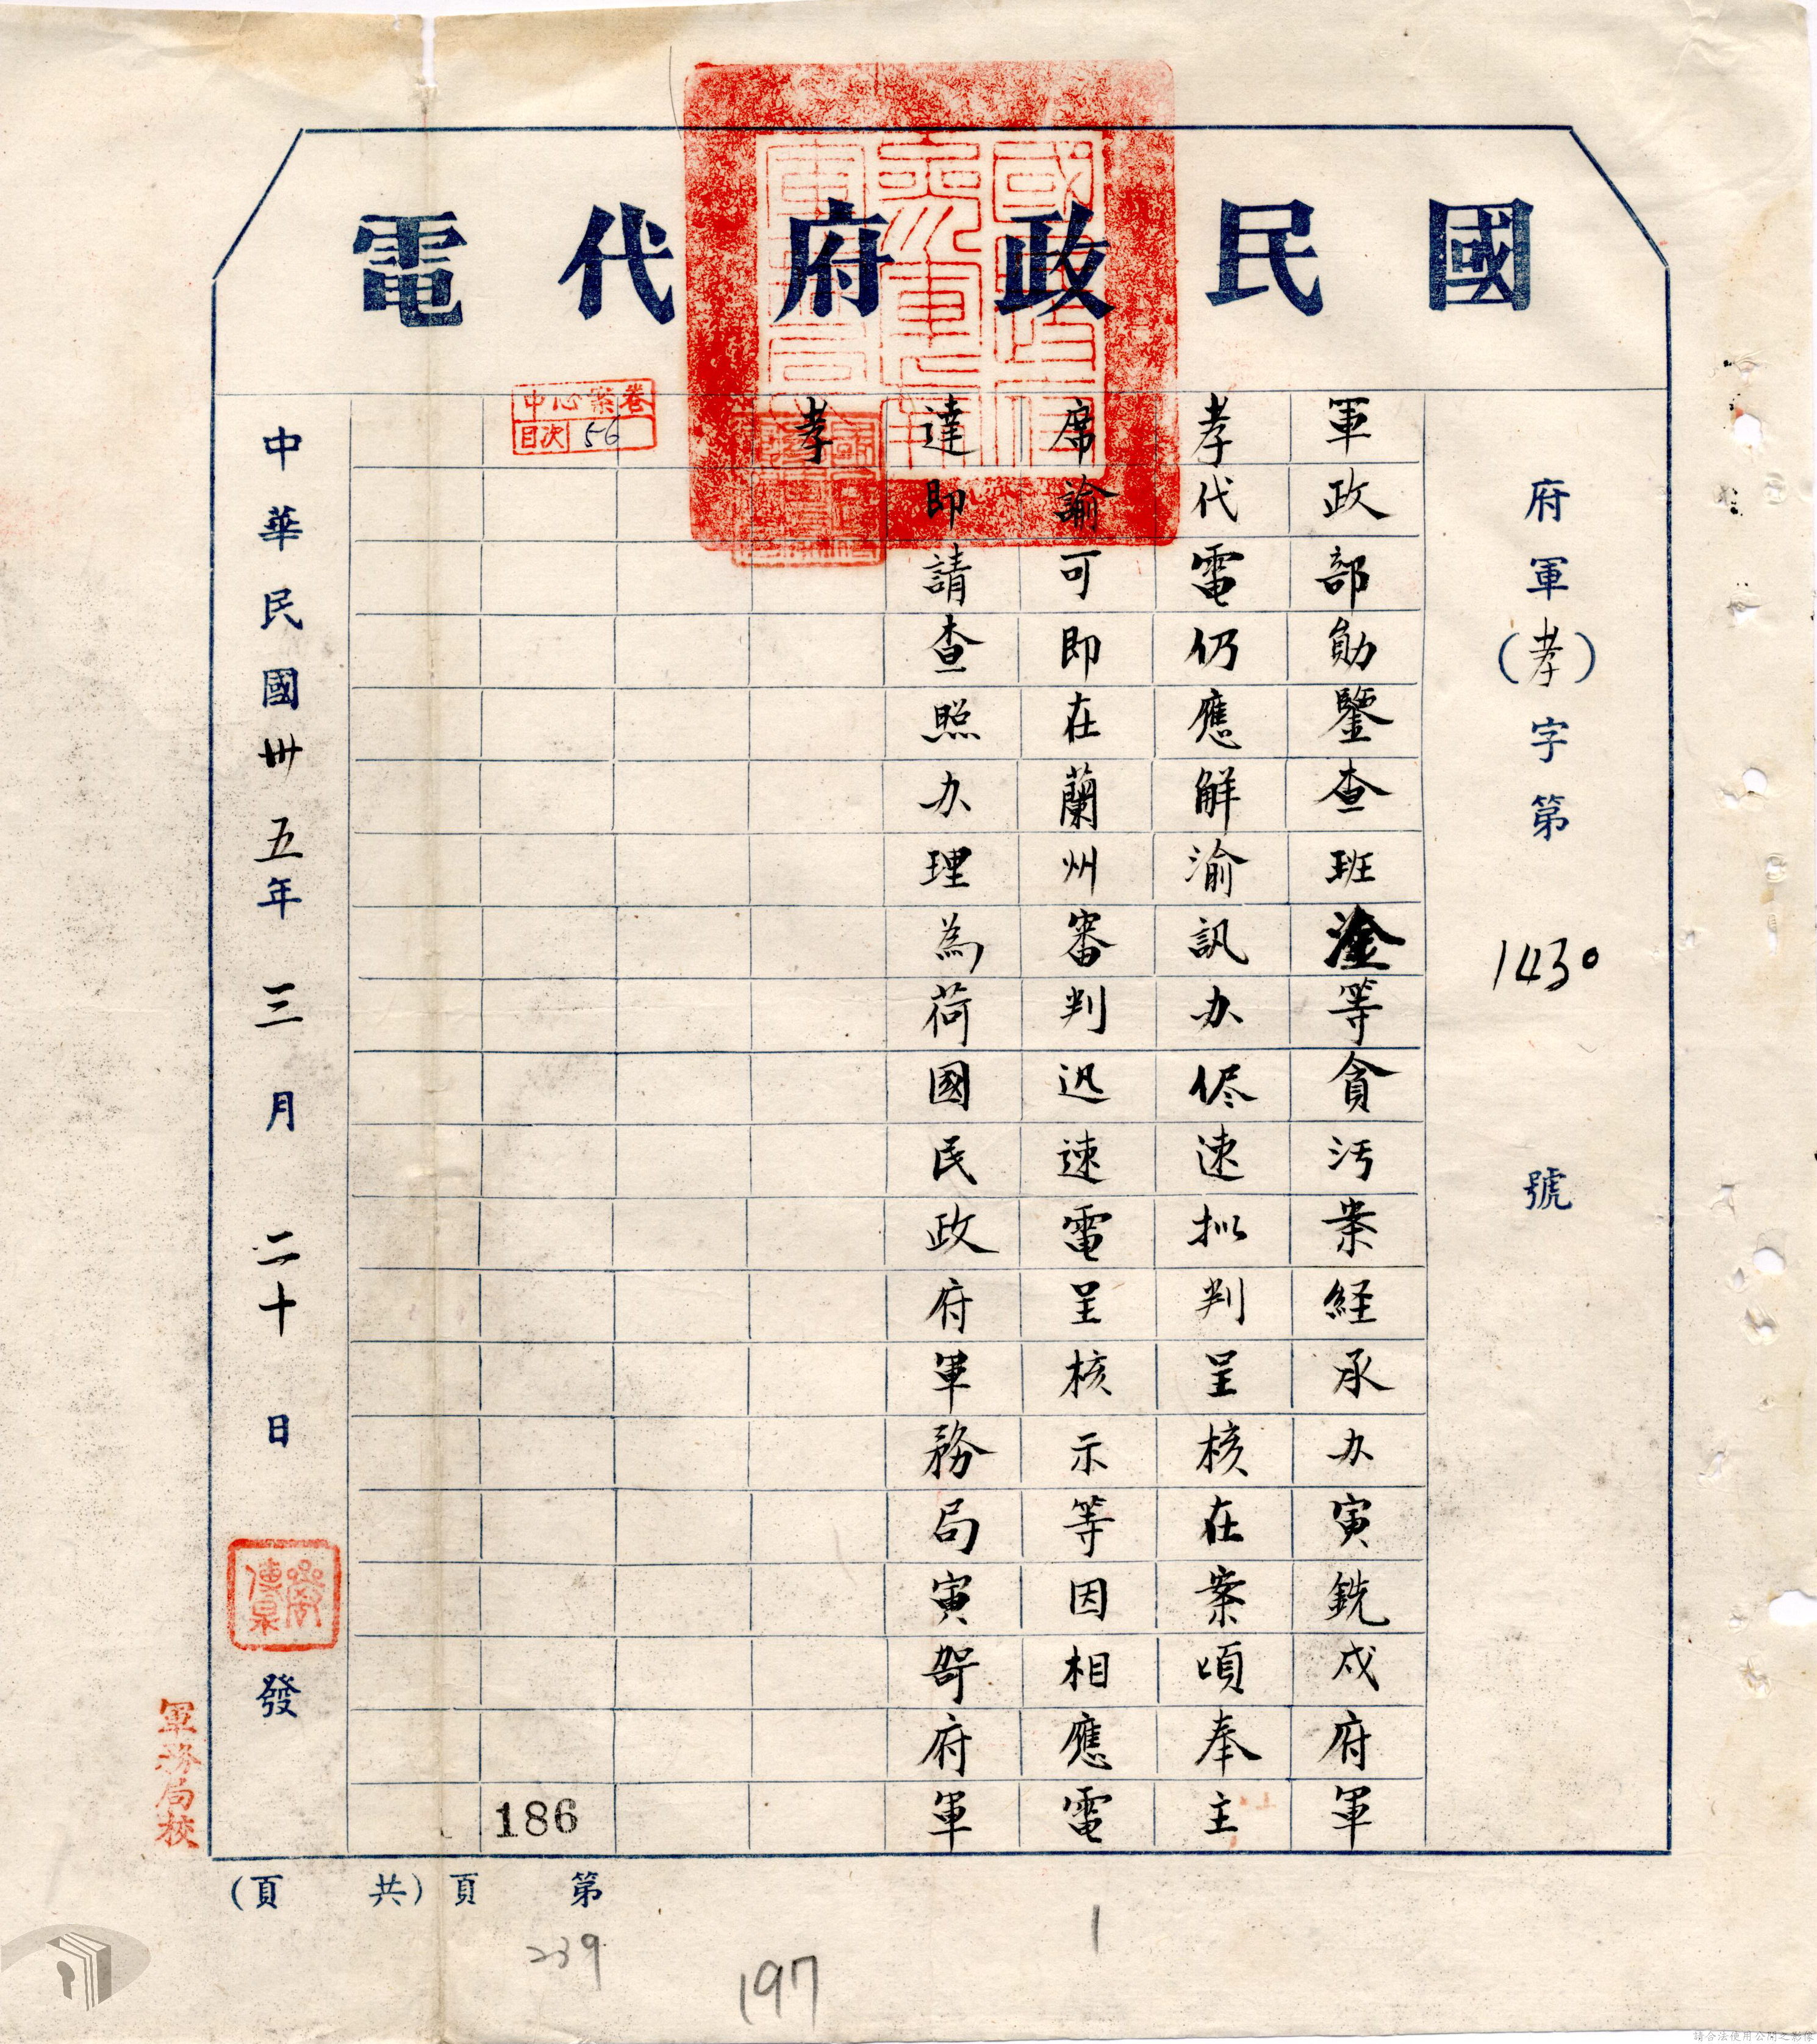 國民政府代電
府軍(孝)字第1430號
軍政部勛鑒查班淦等貪汚案経承办寅銑戍府軍
孝代電仍應解渝訊办侭速拟判呈核在案頃奉主
席諭可即在蘭州審判迅速電呈核示等因相應電
達即請查照办理為荷國民政府軍務局寅哿府軍
孝
中心案卷
目次 56
186
中華民國卅五年三月二十日發
軍務局校
第 頁(共 頁)
239
197
1
請合法使用公開之影像